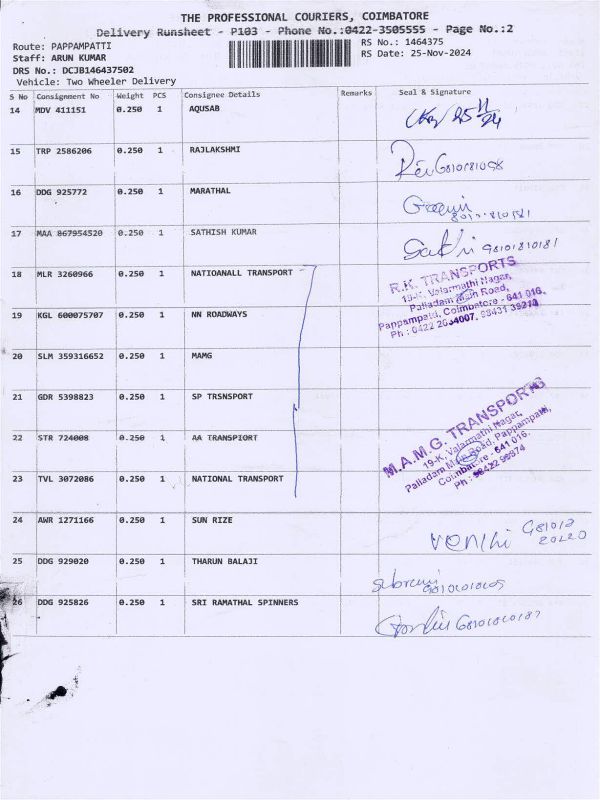 THE PROFESSIONAL COURIERS, COIMBATORE
Delivery Runsheet - P103 - Phone No.:0422-3505555 - Page No.:2
Route: PAPPAMPATTI RS No.: 1464375
Staff: ARUN KUMAR RS Date: 25-Nov-2024
DRS No.: DCJB146437502
Vehicle: Two Wheeler Delivery
S No Consignment No Weight PCS Consignee Details Remarks Seal & Signature
14 MDV 411151 0.250 1 AQUSAB
15 TRP 2586206 0.250 1 RAJLAKSHMI
16 DDG 925772 0.250 1 MARATHAL
17 MAA 867954520 0.250 1 SATHISH KUMAR
Sakhi 98101810181
18 MLR 3260966 0.250 1 NATIOANALL TRANSPORT
R.K. TRANSPORTS
19-K, Valarmathi Nagar,
Palladam Main Road,
Pappampatti, Coimbatore - 641 016.
19 KGL 600075707 0.250 1 NN ROADWAYS
20 SLM 359316652 0.250 1 MAMG
21 GDR 5398823 0.250 1 SP TRSNSPORT
M.A.M.G. TRANSPORTS
19-K, Valarmathi Nagar,
Palladam Main Road, Pappampatti,
Coimbatore - 641 016.
22 STR 724008 0.250 1 AA TRANSPIORT
23 TVL 3072086 0.250 1 NATIONAL TRANSPORT
24 AWR 1271166 0.250 1 SUN RIZE
25 DDG 929020 0.250 1 THARUN BALAJI
26 DDG 925826 0.250 1 SRI RAMATHAL SPINNERS